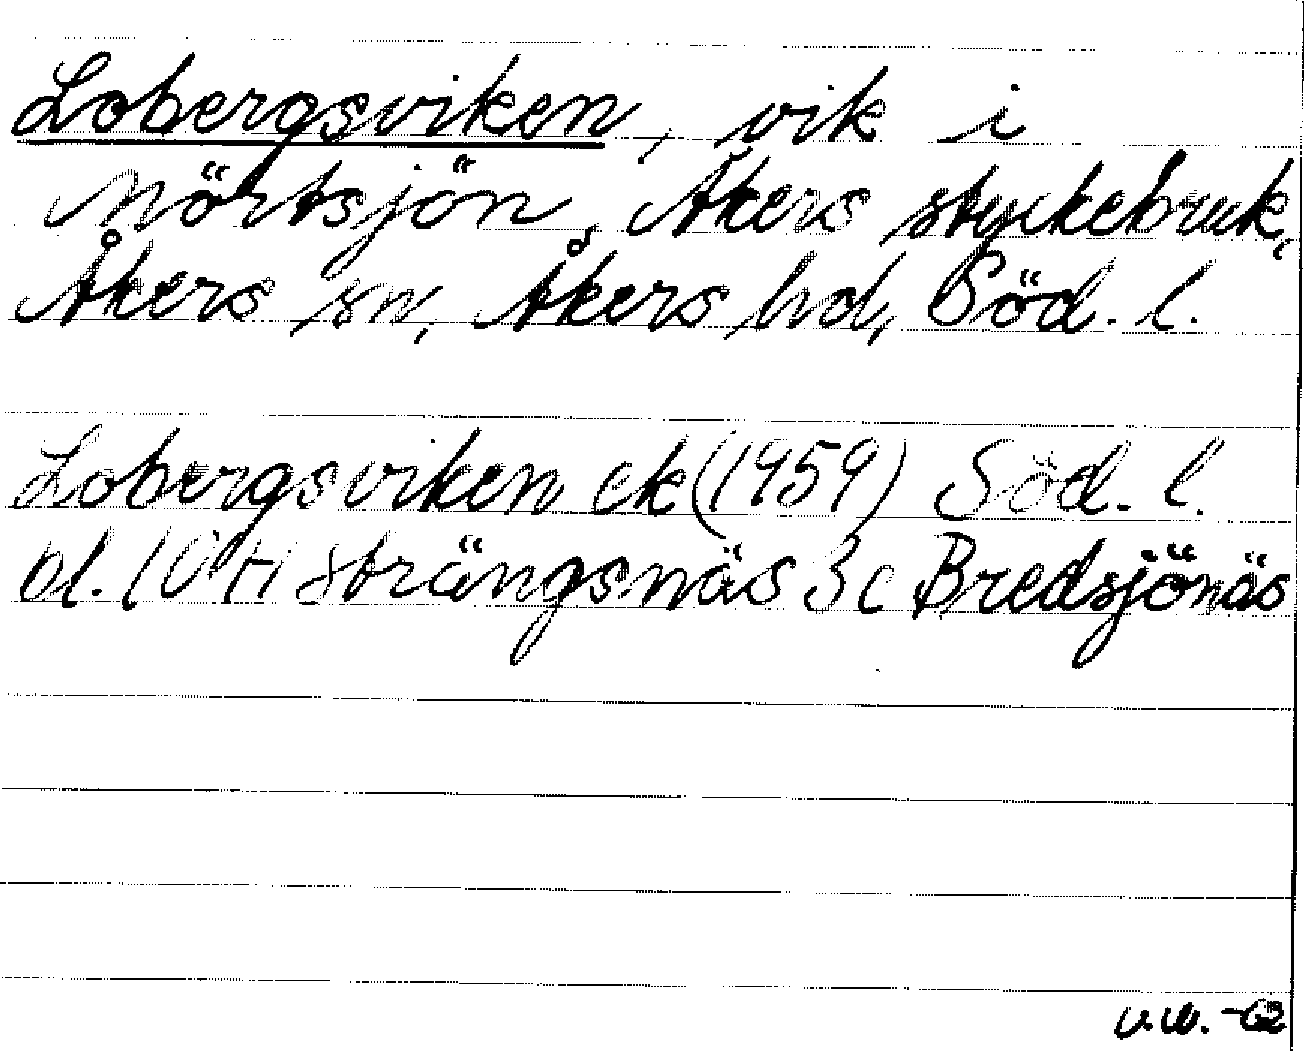 Lobergsviken, vik i
Mörtsjön, Åkers styckebruk,
Åkers sn, Åkers hd, Söd. l.
Lobergsviken ek (1959) Söd. l.
bl. 10H Strängsnäs 3c Bredsjönäs
-62